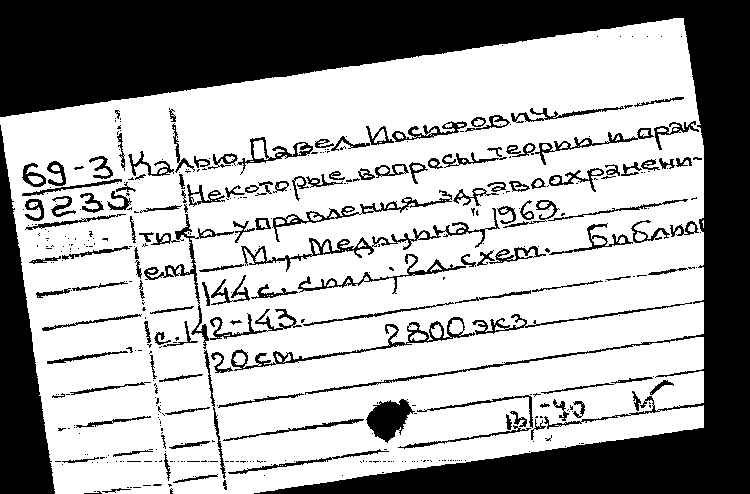 69-3
9235
Калью, Павел Иосифович.
Некоторые вопросы теории и прак-
тики управления здравоохранени-
ем. М., "Медицина", 1969.
144 с. с илл.; 2 л. схем. Библиогр
с. 142-143.
20 см. 2800 экз.
-70 М